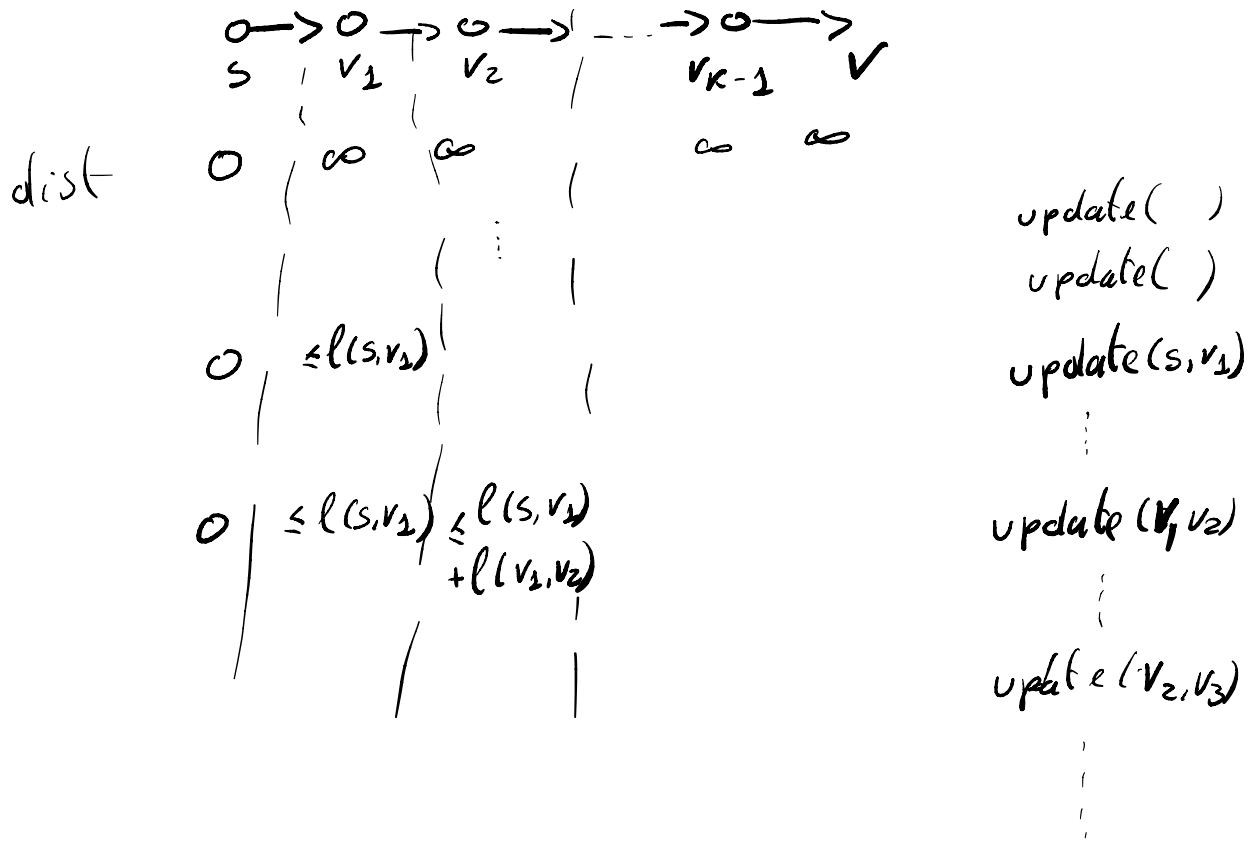 s v₁ v₂ vₖ₋₁ v
dist 0 ∞ ∞ ∞ ∞
update( )
update( )
0 ≤ l(s,v₁) update(s,v₁)
0 ≤ l(s,v₁) ≤ l(s,v₁) update(v₁,v₂)
+l(v₁,v₂)
update(v₂,v₃)